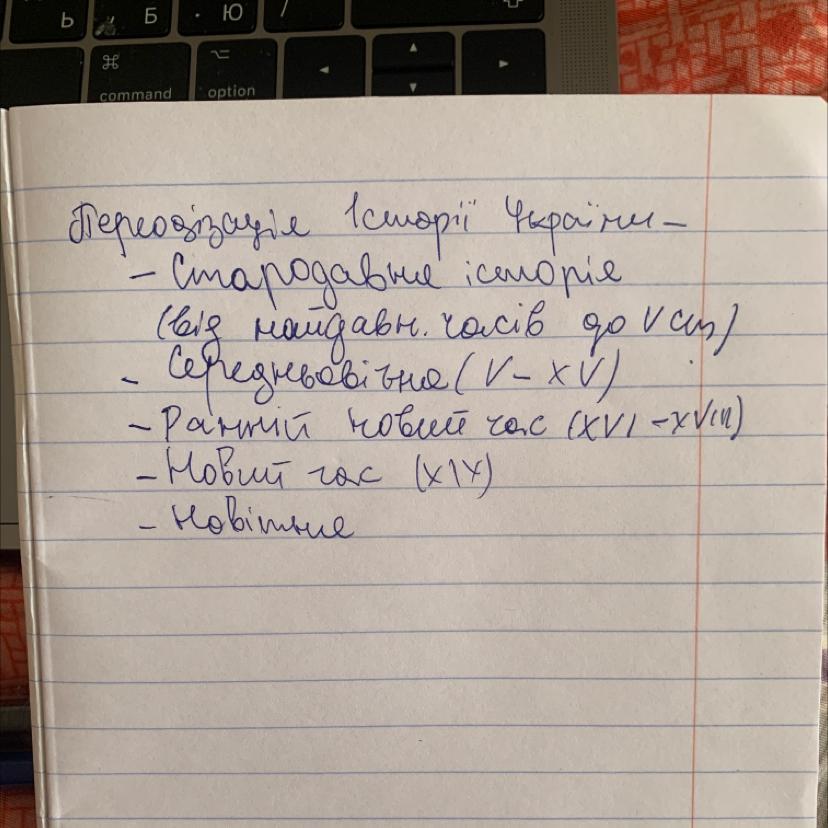 Ь Б . Ю /
⌘ ⌥ ◄ ▲ ►
command option ▼
Переодізація Історії України –
– Стародавня історія
(від найдавн. часів до V ст)
– Середньовічна (V – XV)
– Ранній новий час (XVI – XVIII)
– Новий час (XIX)
– Новітня